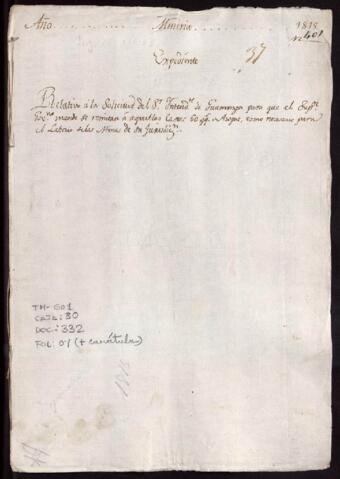 Año . . . . . Mineria . . . . . 1818
N. 401
Expediente 37
Relativo á la Solicitud del Sr. Intendte. de Guamanga para que el Supr.
Gov.no mande se remitan á aquellas Caxas 60 qq. de Azogue, como necesario para
el Laboreo de las Minas de su Jurisdizn.
TM-GO1
CAJA: 30
DOC: 332
FOL: 01 (+ carátula)
1818